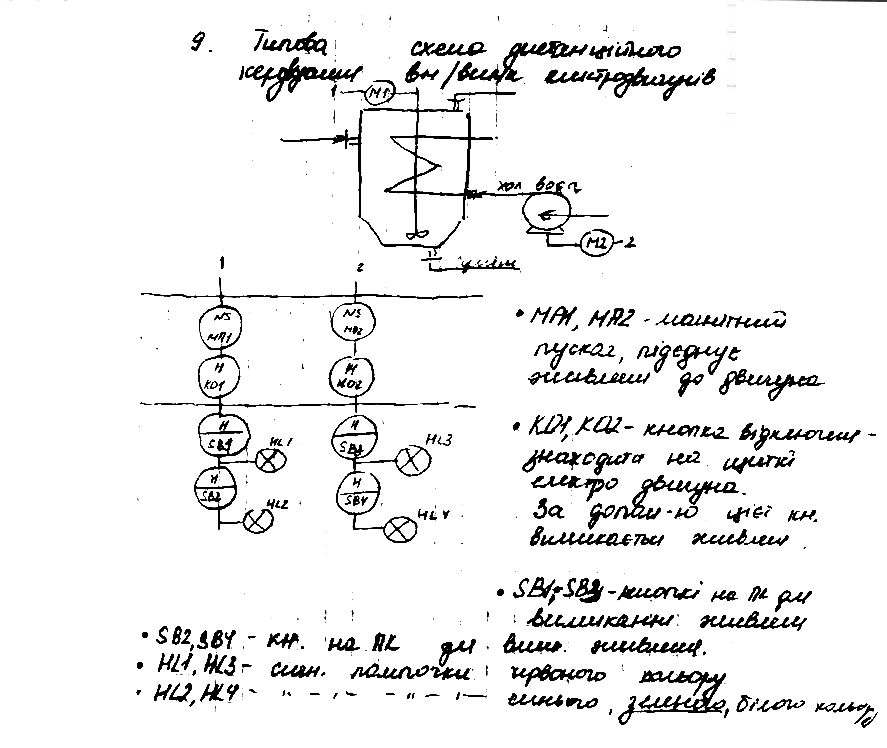 9. Типова схема дистанційного
керування вн/вимк електродвигунів
1 М1
хол вода
М2 2
1 2
NS МП1 NS МП2
H КО1 H КО2
H SB1 HL1 H SB3 HL3
H SB2 HL2 H SB4 HL4
• МП1, МП2 - магнітний
пускач, підєднує
живлення до двигуна
• КО1, КО2 - кнопка відключення -
знаходиться на щиткі
електро двигуна.
За допом-ю цієї кн.
вимикається живлен
• SB1, SB3 - кнопкі на ПК для
вимиканні живлен
• SB2, SB4 - кн. на ПК для вмик. живлення.
• HL1, HL3 - сигн. лампочки червоного кольору
• HL2, HL4 - " - " - " - " - синього, зеленого, білого кольору